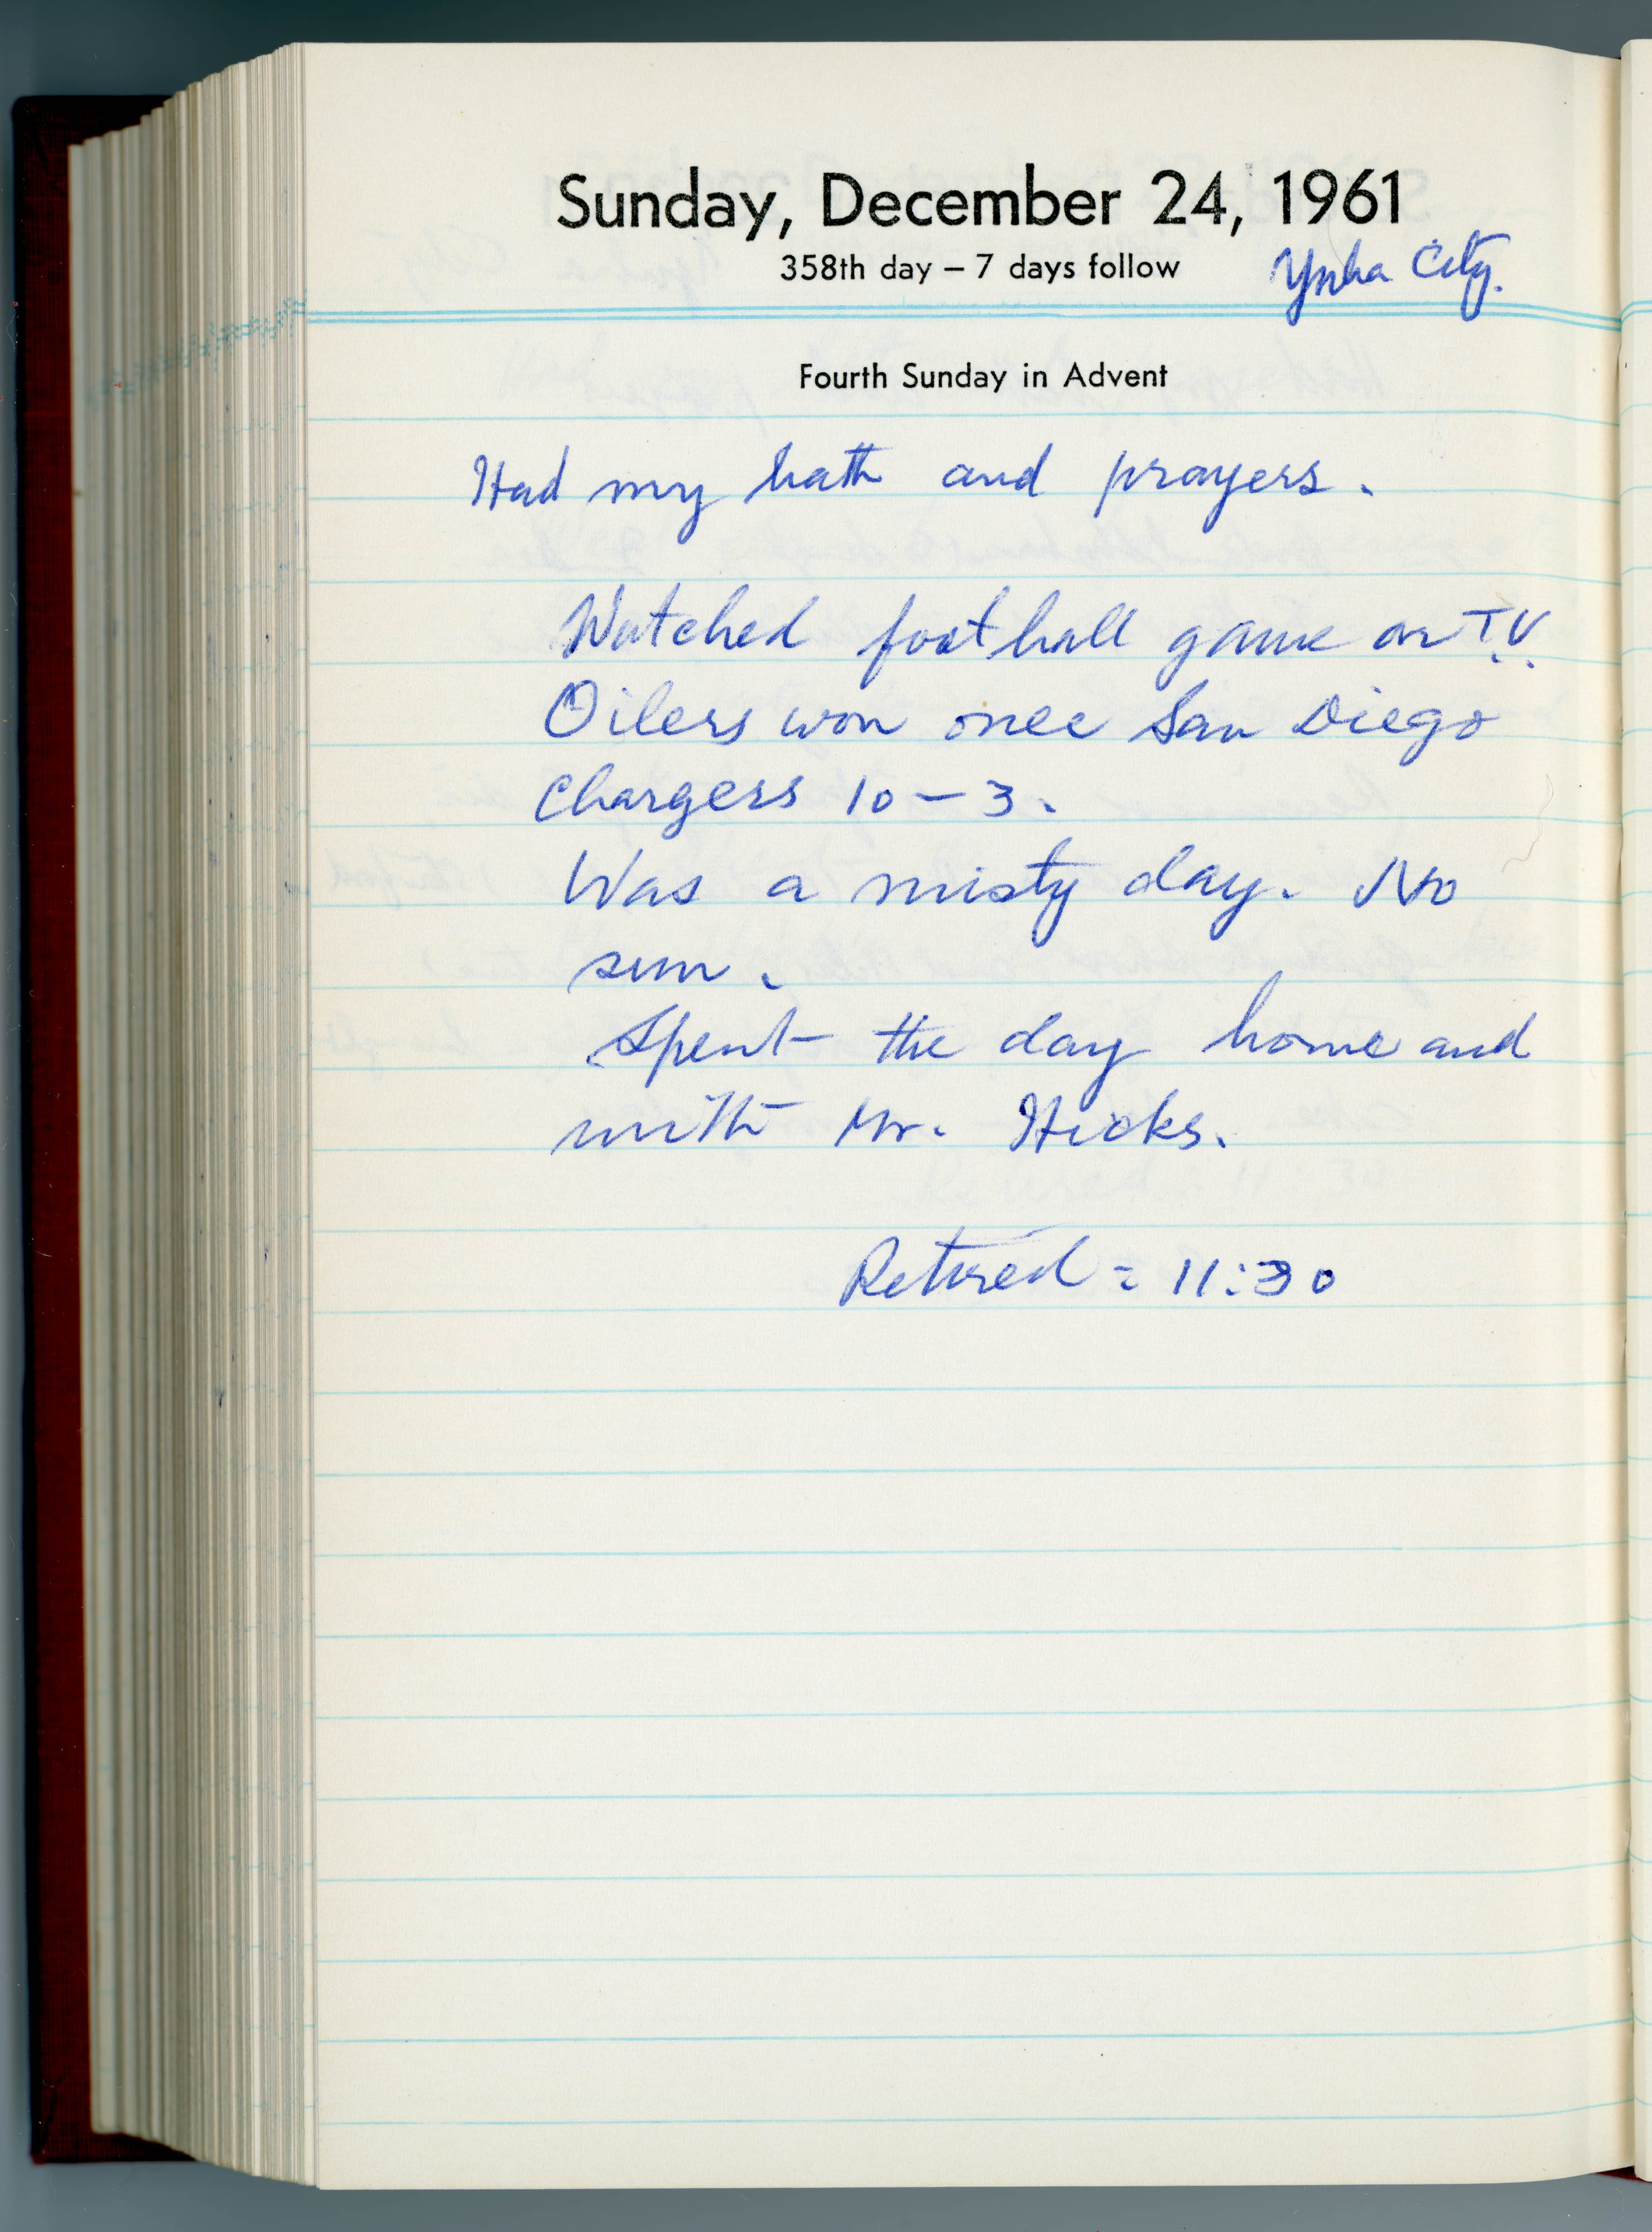 Sunday, December 24, 1961
358th day – 7 days follow
Yuba City.
Fourth Sunday in Advent
Had my bath and prayers.
Watched football game on T.V.
Oilers won once San Diego
Chargers 10 – 3.
Was a misty day. No
sun.
Spent the day home and
with Mr. Hicks.
Retired = 11:30